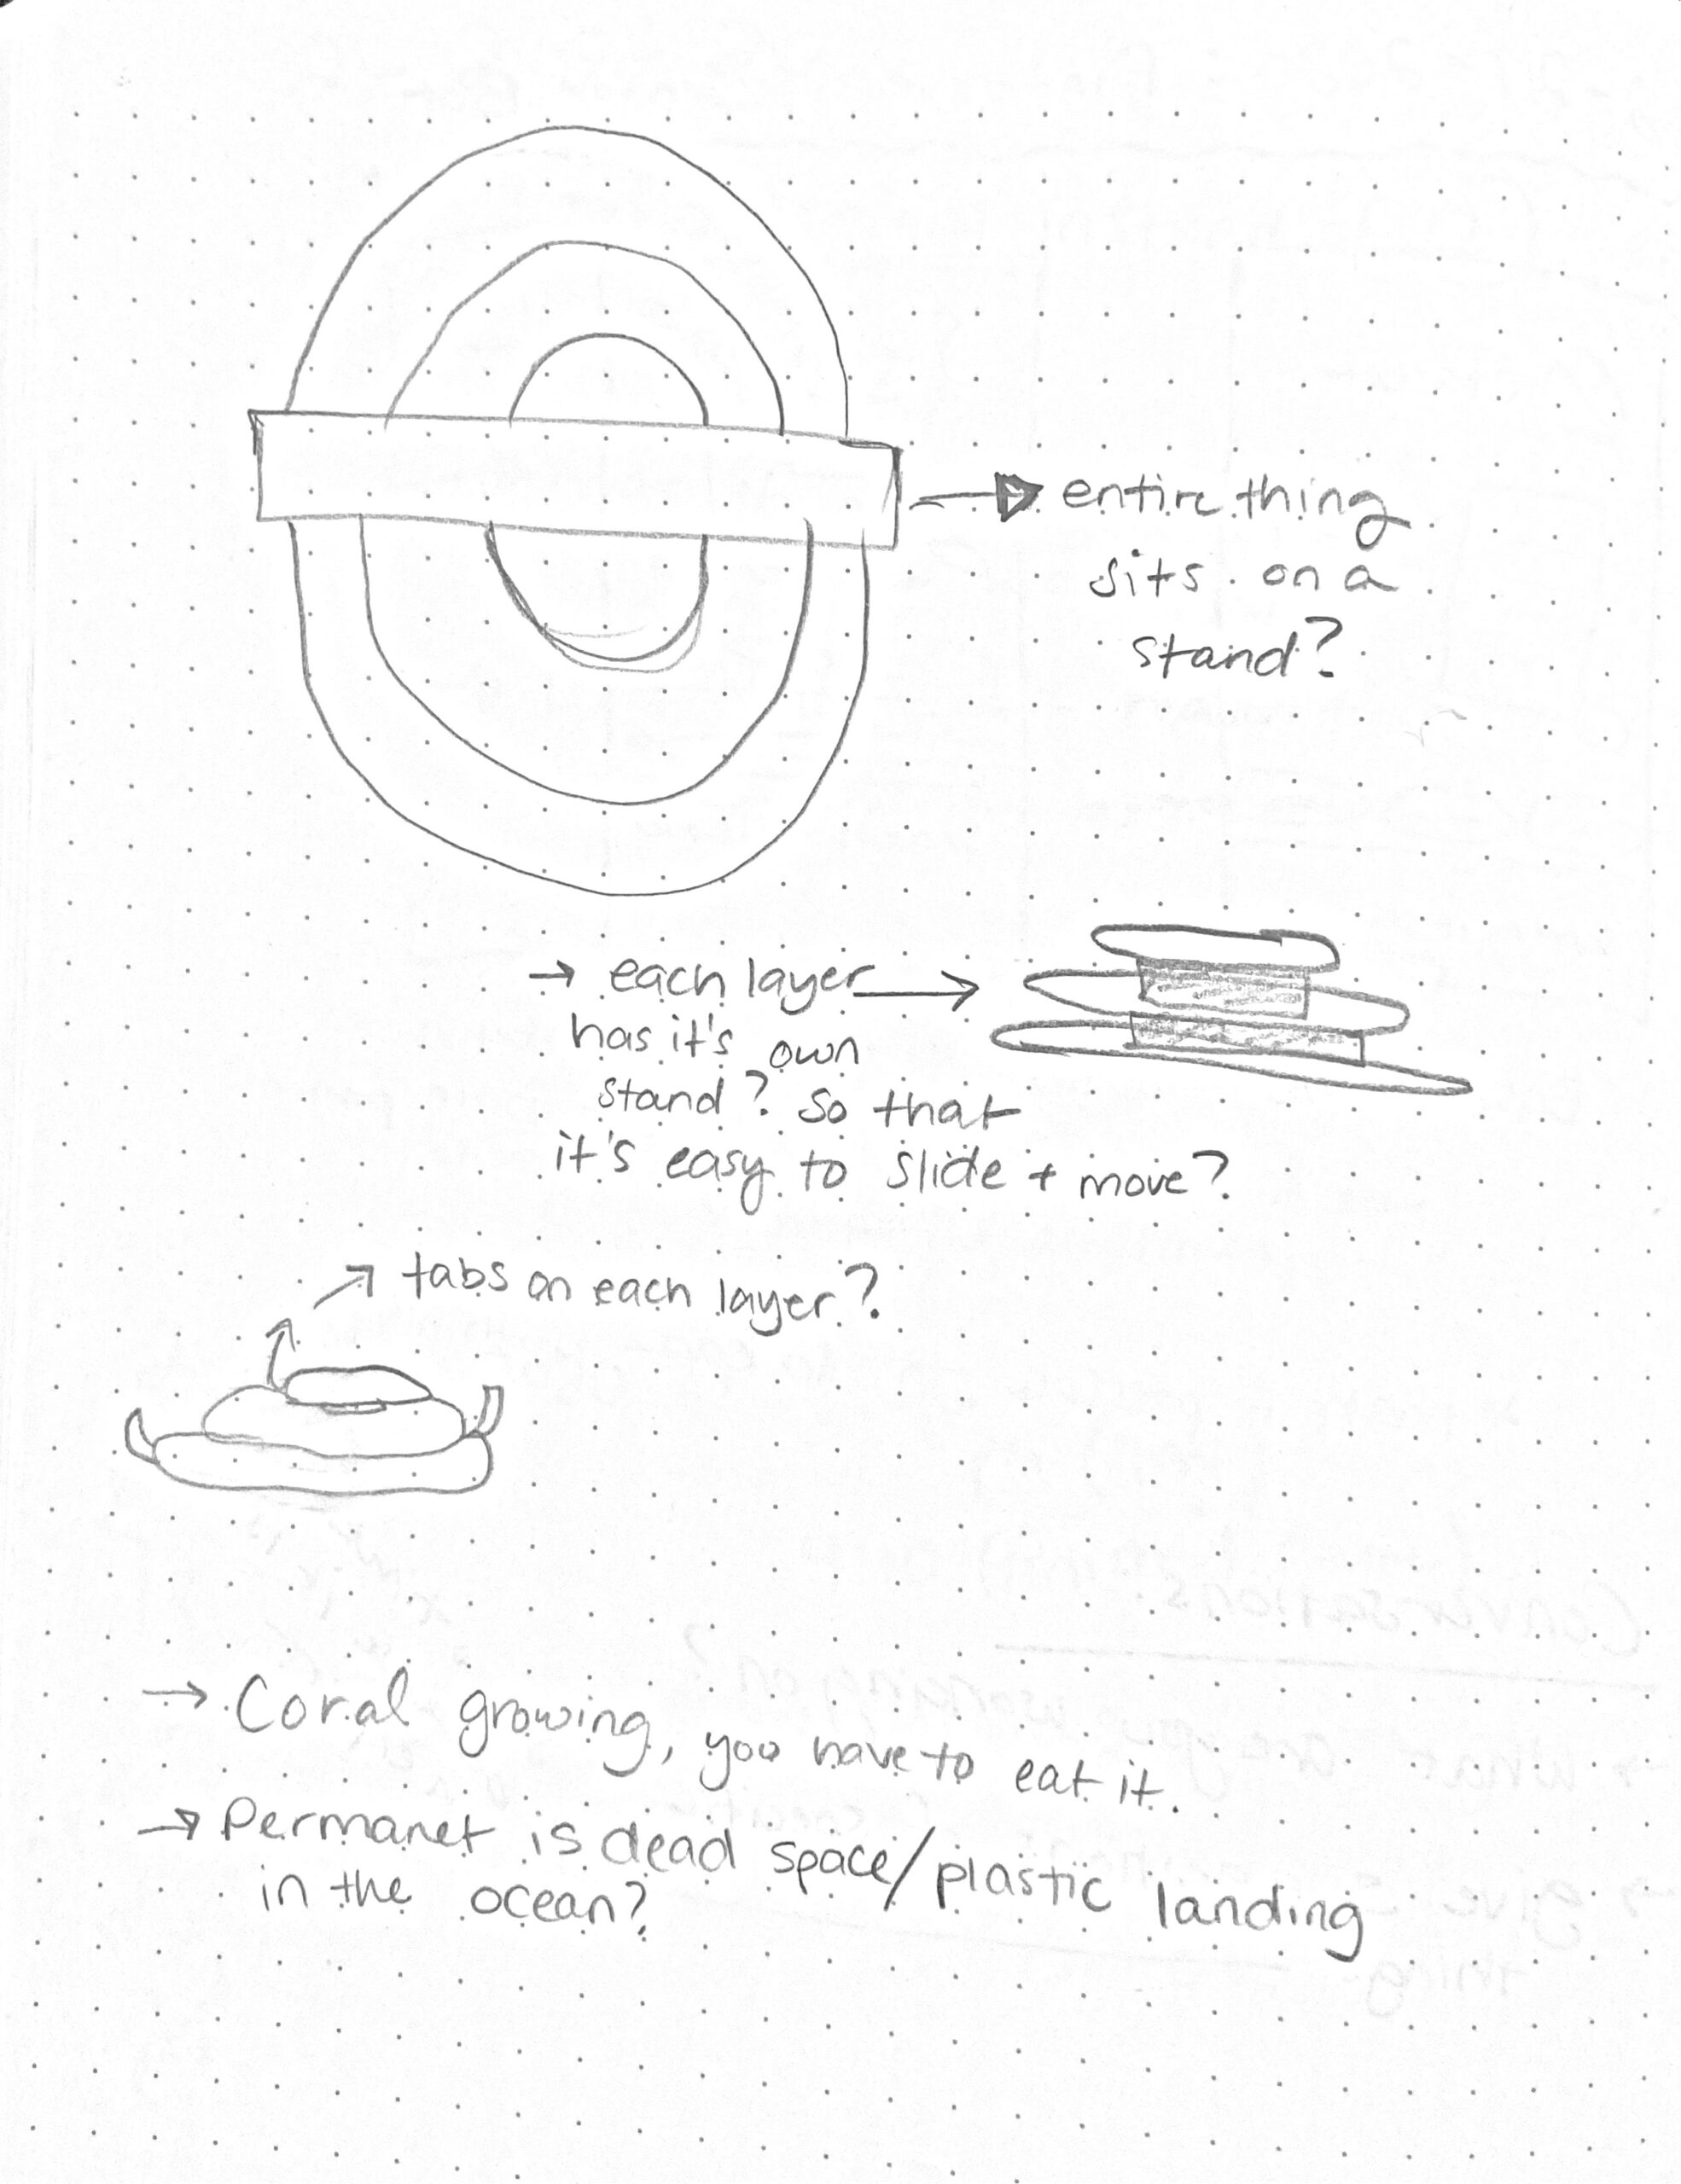 entire thing
sits on a
stand?
→ each layer →
has it's own
stand? So that
it's easy to slide + move?
tabs on each layer?
→ Coral growing, you have to eat it.
→ Permanet is dead space/plastic landing
in the ocean?